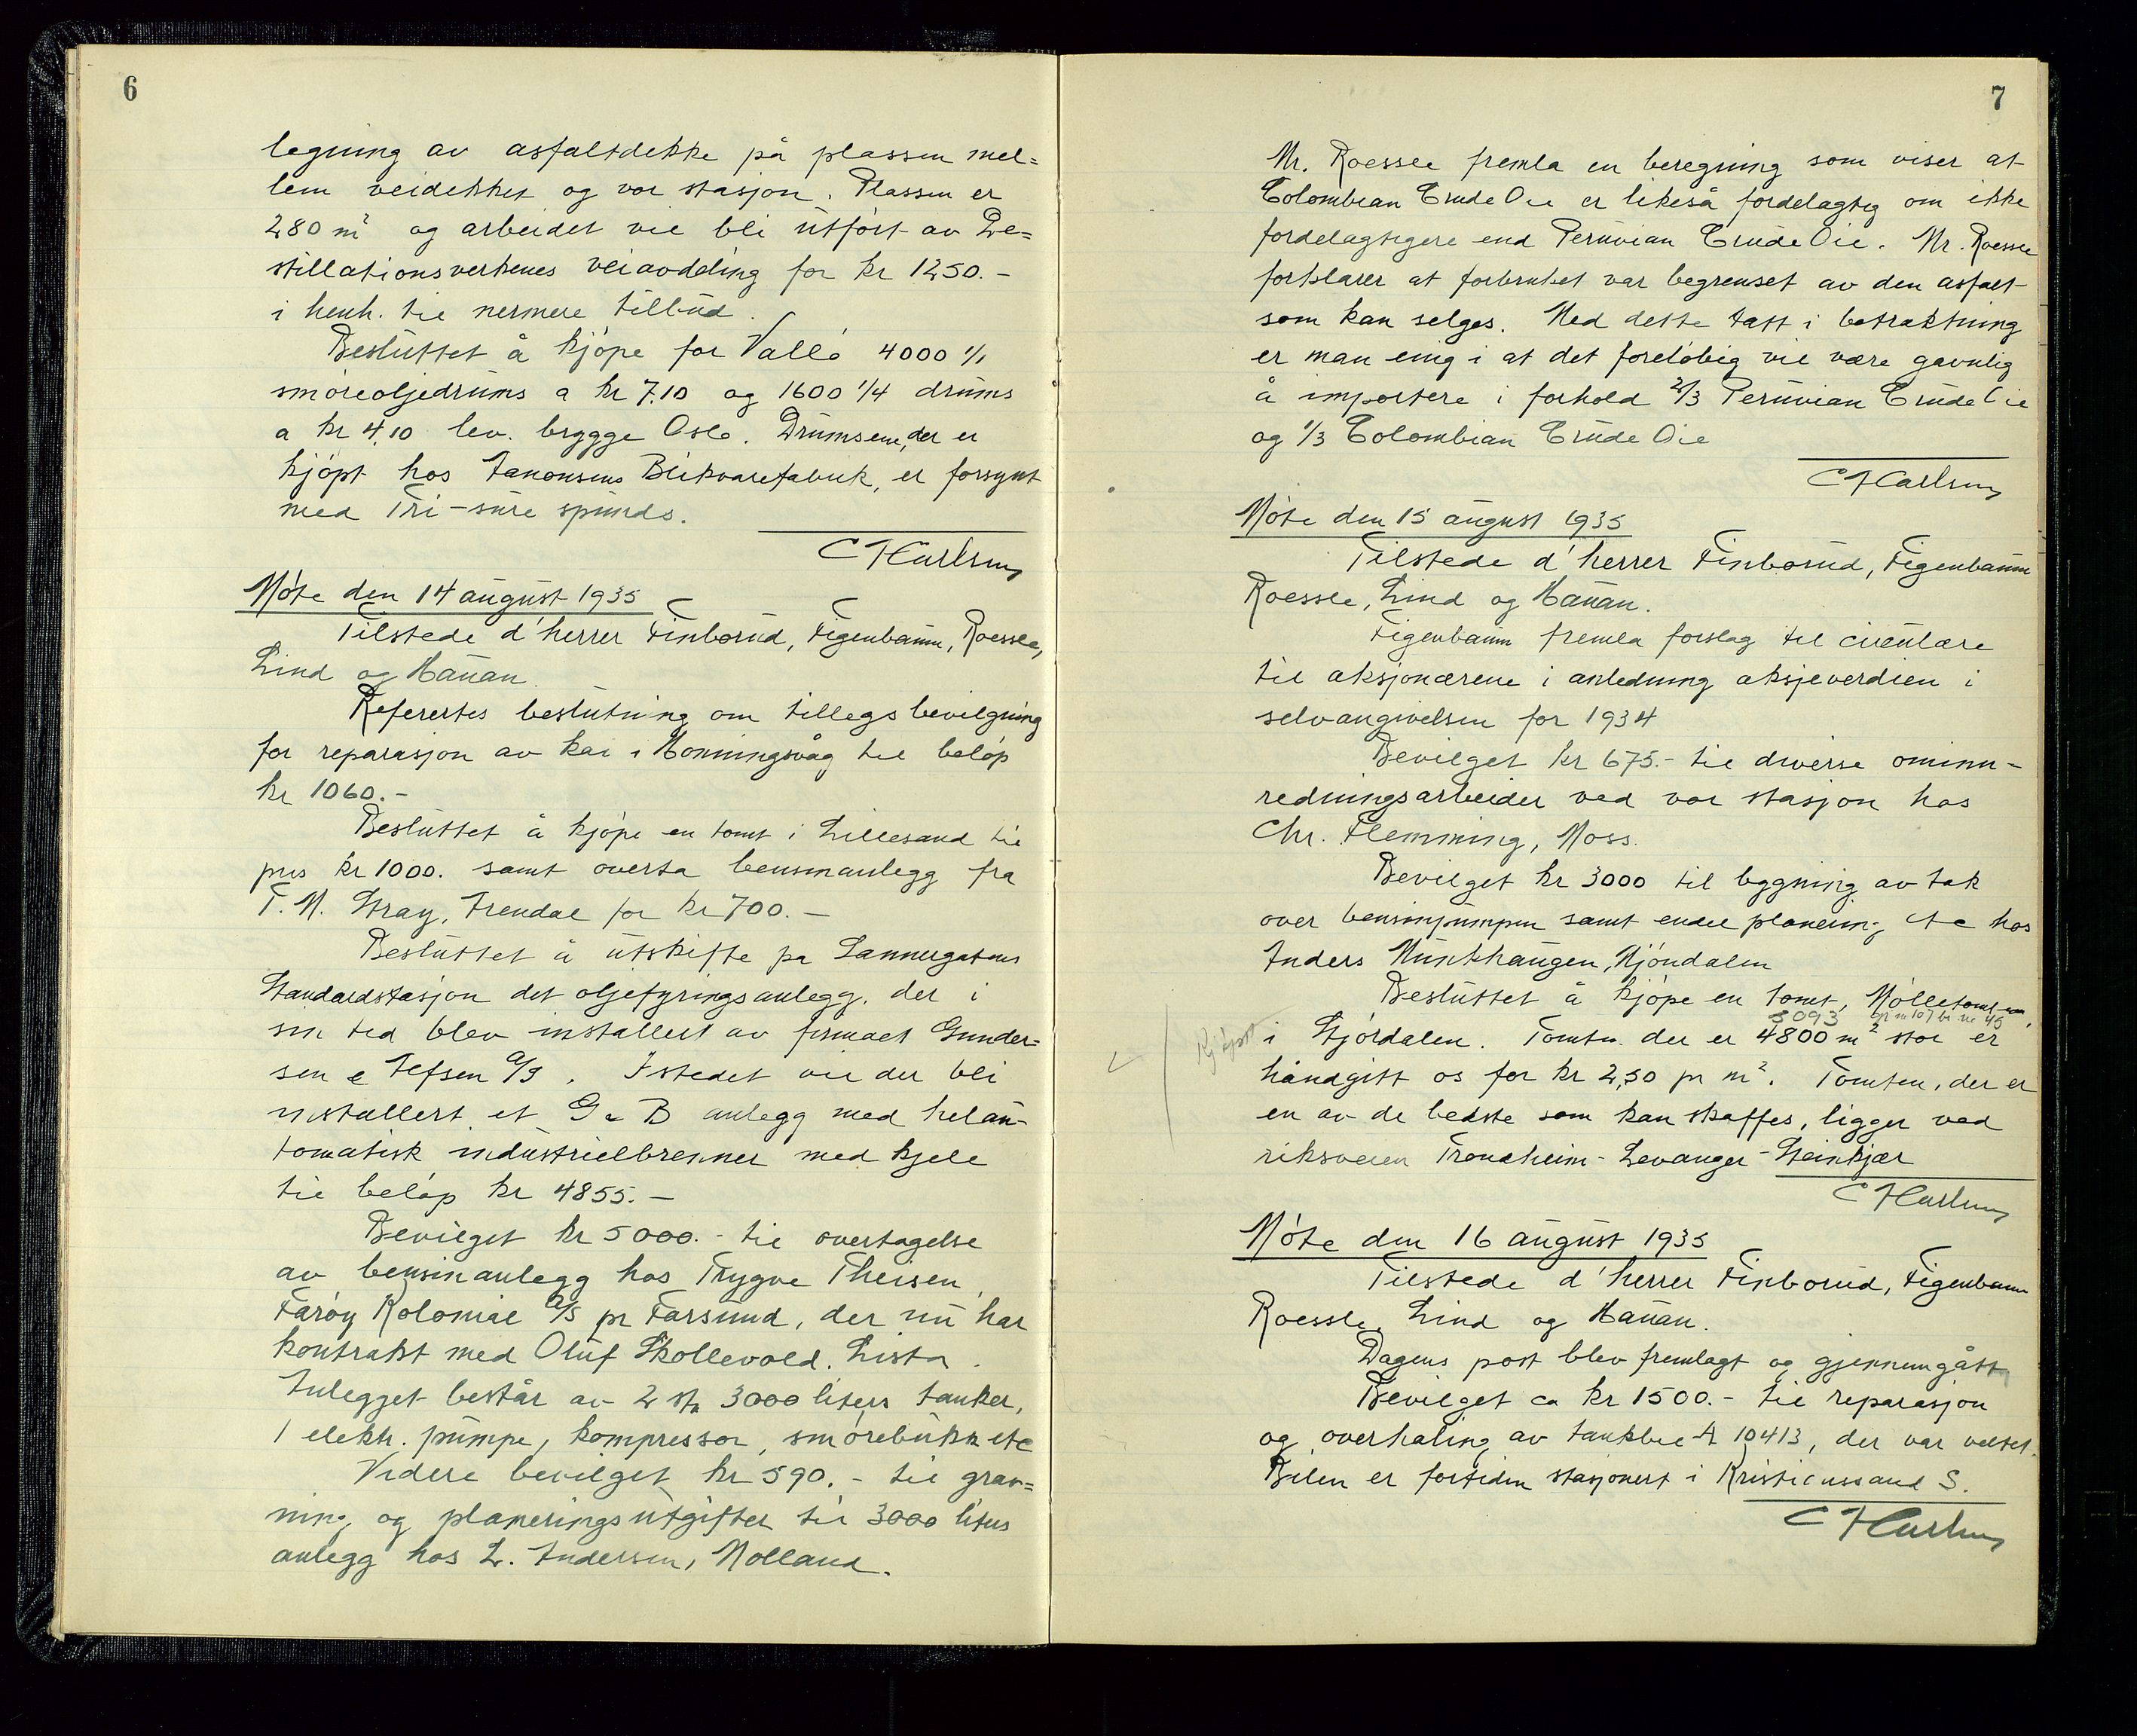 6
legning av asfaltdekke på plassen mel=
lem veidekket og vor stasjon. Plassen er
280 m² og arbeidet vil bli utført av De=
stillationsverkenes veiavdeling for kr 1250.-
i henh. til nermere tilbud.
Besluttet å kjøpe for Vallø 4000 1/1
smøreoljedrums a kr 7.10 og 1600 1/4 drums
a kr 4.10 lev. brygge Oslo. Drumsene, der er
kjøpt hos Aanonsens Blikvarefabrik, er forsynt
med Tri-sure spunds.
C F Karlsen
Møte den 14 august 1935
Tilstede d'herrer Finborud, Figenbaum, Roessle,
Lind og Hauan.
Refertes beslutning om tillegsbevilgning
for reparasjon av kai i Honningsvåg til beløp
kr 1060.-
Besluttet å kjøpe en tomt i Lillesand til
pris kr 1000. samt overta bensinanlegg fra
T. M. Stray, Arendal for kr 700.-
Besluttet å utskifte på Lannergatens
Standardstasjon det oljefyringsanlegg, der i
sin tid blev installert av firmaet Gunder=
sen & Jefsen A/S. Istedet vil der bli
installert et G & B anlegg med helau-
tomatisk industrielbrenner med kjele
til beløp kr 4855.-
Bevilget kr 5000.- til overtagelse
av bensinanlegg hos Trygve Theisen,
Farøy Kolonial A/S pr Farsund, der nu har
kontrakt med Oluf Skollevold. Lista.
Anlegget består av 2 stk 3000 liters tanker,
1 elektr. pumpe, kompressor, smørebukk etc
Videre bevilget kr 590.- til grav=
ning og planeringsutgifter til 3000 liters
anlegg hos L. Andersen, Molland.
7
Mr. Roessle fremla en beregning som viser at
Colombian Crude Oil er likeså fordelagtig om ikke
fordelagtigere end Peruvian Crude Oil. Mr. Roessle
forklarer at forbruket var begrenset av den asfalt
som kan selges. Med dette tatt i betraktning
er man enig i at det foreløbig vil være gavnlig
å importere i forhold 2/3 Peruvian Crude Oil
og 1/3 Colombian Crude Oil
C F Karlsen
Møte den 15 august 1935
Tilstede d'herrer Finborud, Figenbaum
Roessle, Lind og Hauan.
Figenbaum fremla forslag til cirkulære
til aksjonærene i anledning aksjeverdien i
selvangivelsen for 1934
Bevilget kr 675.- til diverse ominn-
redningsarbeider ved vor stasjon hos
Chr. Flemming, Moss.
Bevilget kr 3000 til bygning av tak
over bensinpumpen samt endel planering etc hos
Anders Munkhaugen, Mjøndalen
Besluttet å kjøpe en tomt, Mølletomten,
5093 gr nr 107 br. nr 45
Kjøpt i Stjørdalen. Tomten der er 4800 m² stor er
håndgitt os for kr 2,50 pr m². Tomten, der er
en av de bedste som kan skaffes, ligger ved
riksveien Trondheim - Levanger - Steinkjær
C F Karlsen
Møte den 16 august 1935
Tilstede d'herrer Finborud, Figenbaum
Roessle, Lind og Hauan.
Dagens post blev fremlagt og gjennemgått
Bevilget ca kr 1500.- til reparasjon
og overhaling av tankbil A 10413, der var veltet.
Bilen er fortiden stasjonert i Kristianssand S.
C F Karlsen